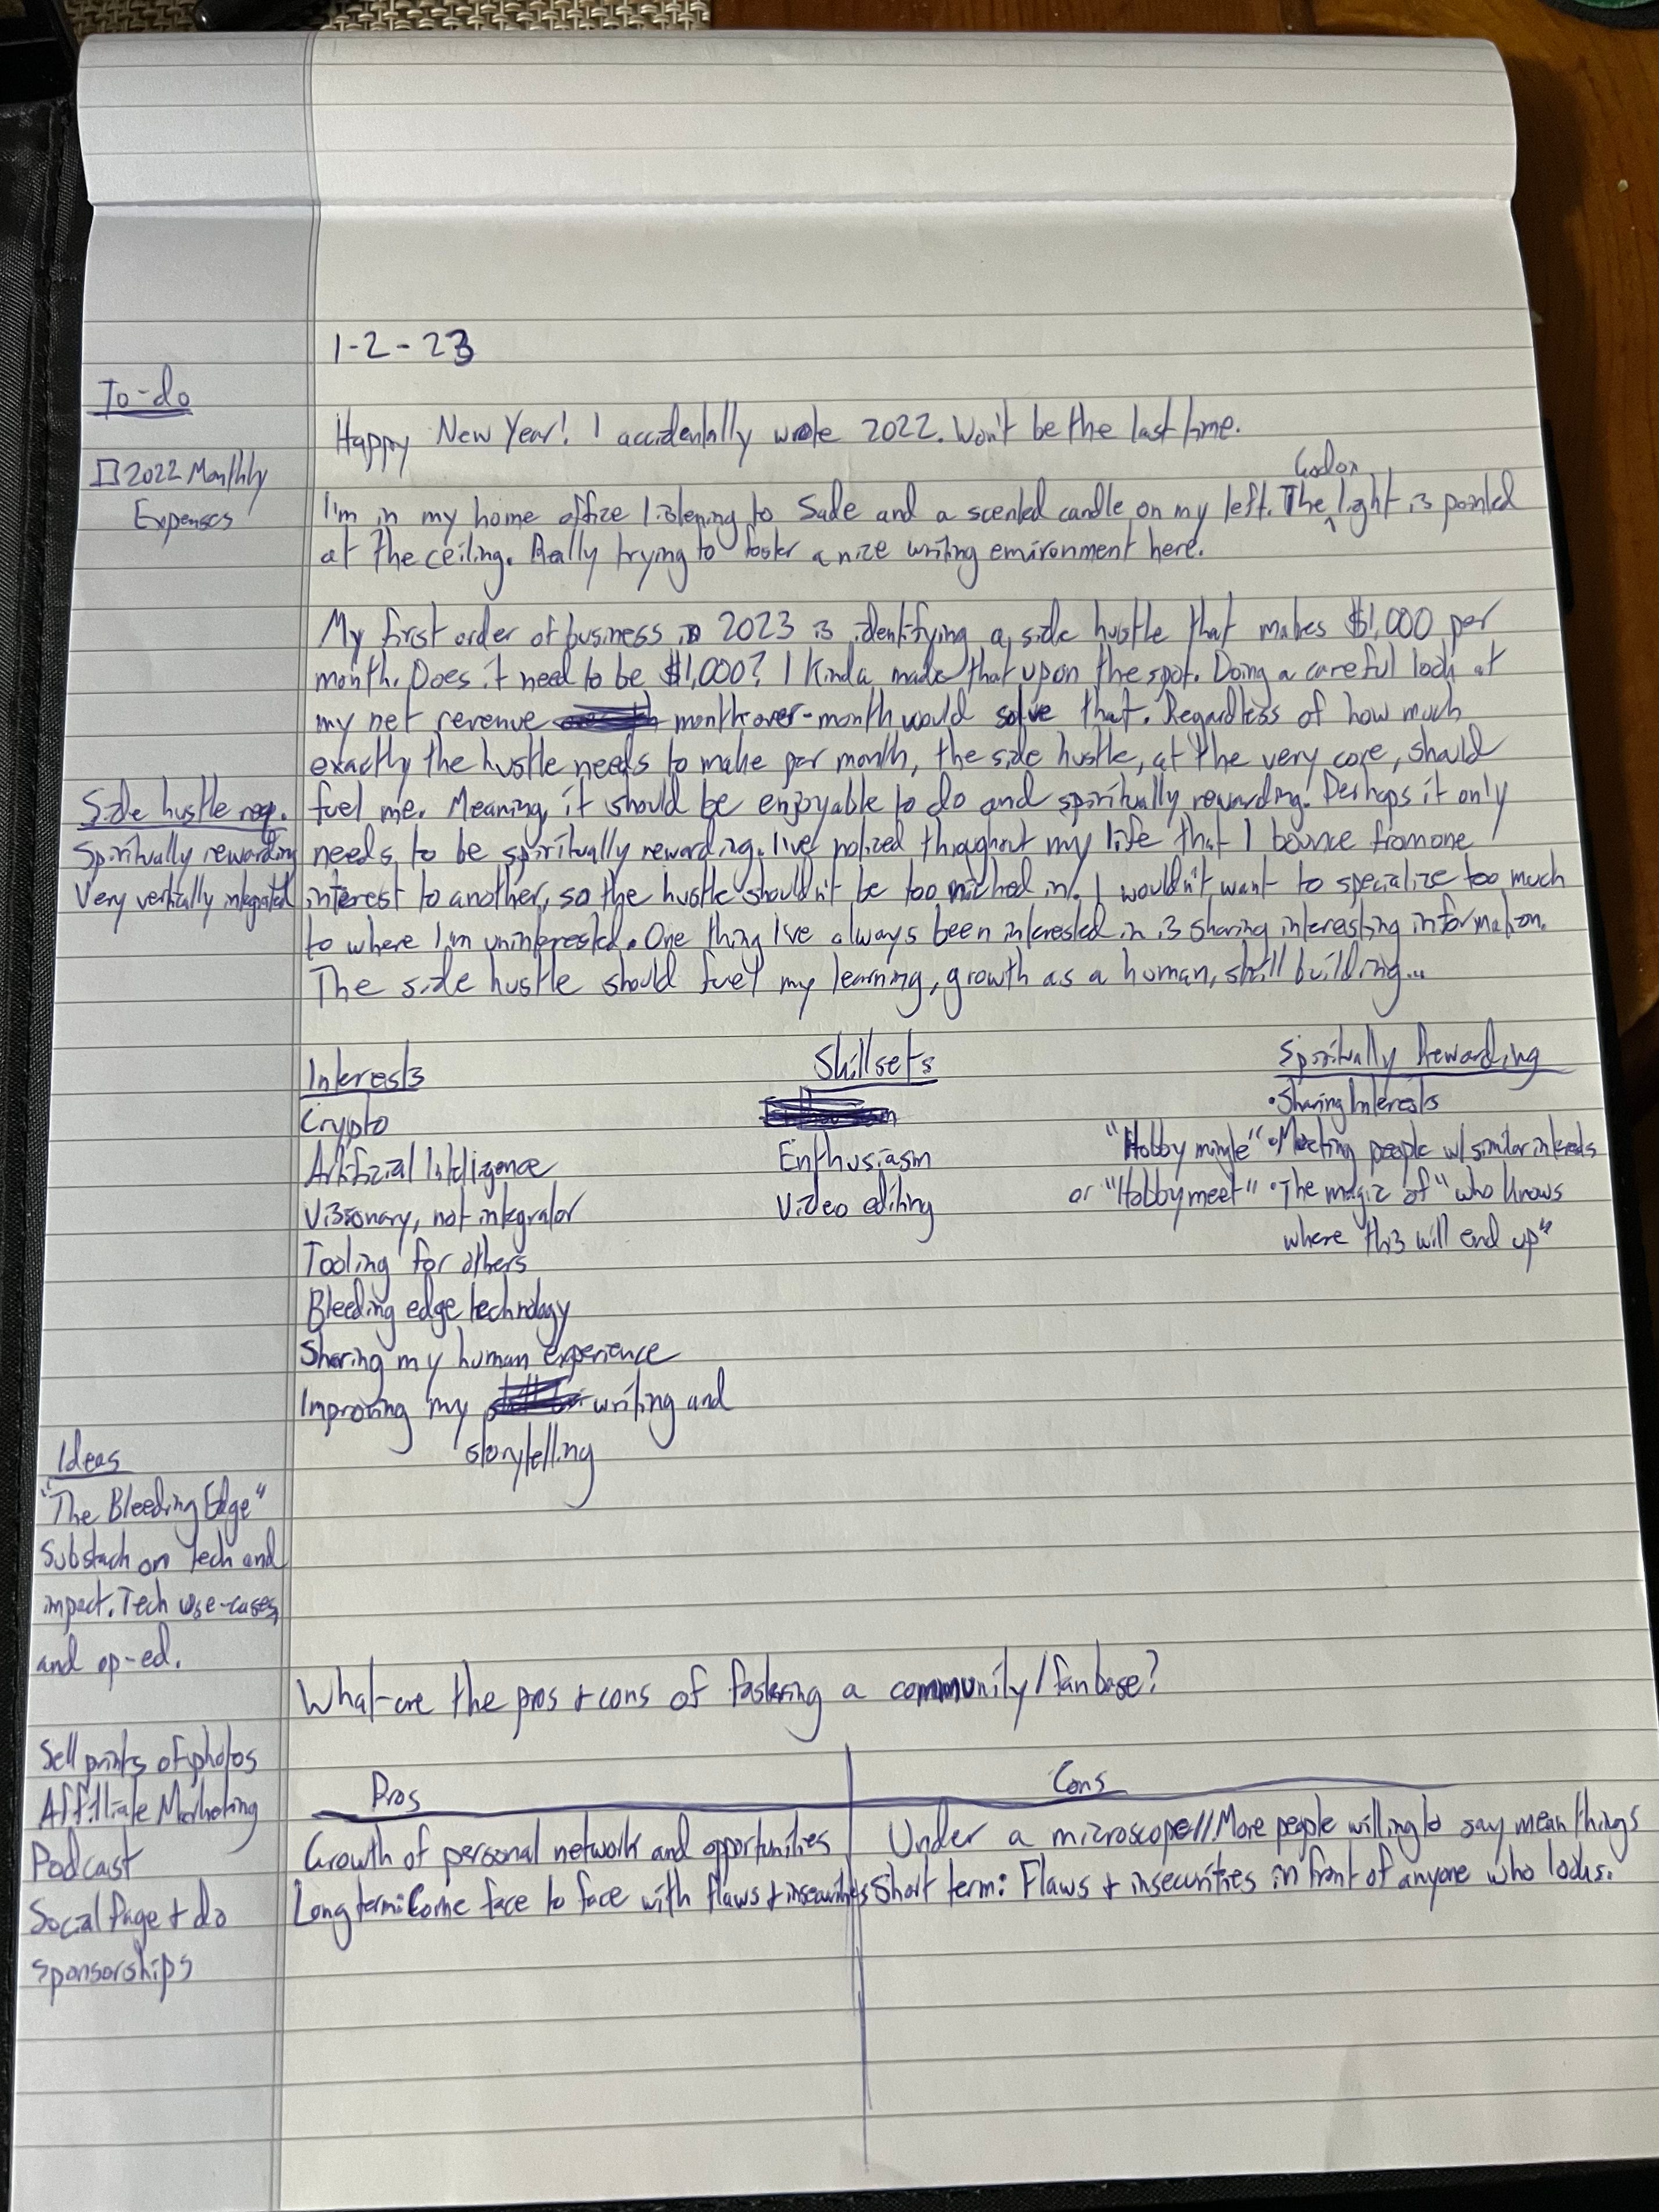 1-2-23
To-do
Happy New Year! I accidentally wrote 2022. Won't be the last time.
☐ 2022 Monthly
Expenses
Godox
I'm in my home office listening to Sade and a scented candle on my left. The ^ light is pointed
at the ceiling. Really trying to foster a nice writing environment here.
My first order of business in 2023 is identifying a side hustle that makes $1,000 per
month. Does it need to be $1,000? I kinda made that up on the spot. Doing a careful look at
my net revenue month-over-month would solve that. Regardless of how much
exactly the hustle needs to make per month, the side hustle, at the very core, should
fuel me. Meaning, it should be enjoyable to do and spiritually rewarding. Perhaps it only
needs to be spiritually rewarding. I've noticed throughout my life that I bounce from one
interest to another, so the hustle shouldn't be too niched in. I wouldn't want to specialize too much
to where I'm uninterested. One thing I've always been interested in is sharing interesting information.
The side hustle should fuel my learning, growth as a human, skill building...
Side hustle req.
Spiritually rewarding
Very vertically integrated
Interests
Crypto
Artificial Intelligence
Visionary, not integrator
Tooling for others
Bleeding edge technology
Sharing my human experience
Improving my writing and
storytelling
Skillsets
Enthusiasm
Video editing
Spiritually Rewarding
• Sharing Interests
"Hobby mingle" • Meeting people w/ similar interests
or "Hobbymeet" • The magic of "who knows
where this will end up"
Ideas
"The Bleeding Edge"
Substack on tech and
impact. Tech use-cases,
and op-ed.
Sell prints of photos
Affiliate Marketing
Podcast
Social Page + do
sponsorships
What are the pros + cons of fostering a community/fanbase?
Pros
Growth of personal network and opportunities
Long term: Come face to face with flaws + insecurities
Cons
Under a microscope // More people willing to say mean things
Short term: Flaws + insecurities in front of anyone who looks.